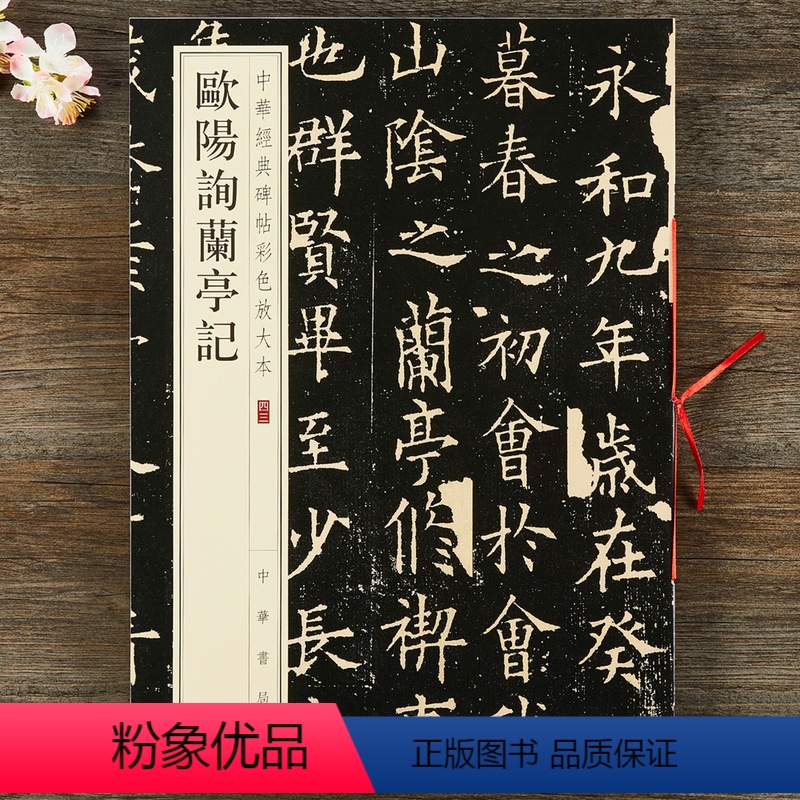 永和九年歲在癸
暮春之初會於會
山陰之蘭亭脩禊
也群賢畢至少長
中華經典碑帖彩色放大本
四三
中華書局
歐陽詢蘭亭記
粉象优品
正版图书 品质保证